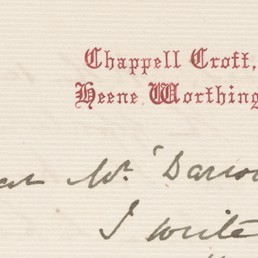 Chappell Croft,
Heene Worthing
Mr.
I write